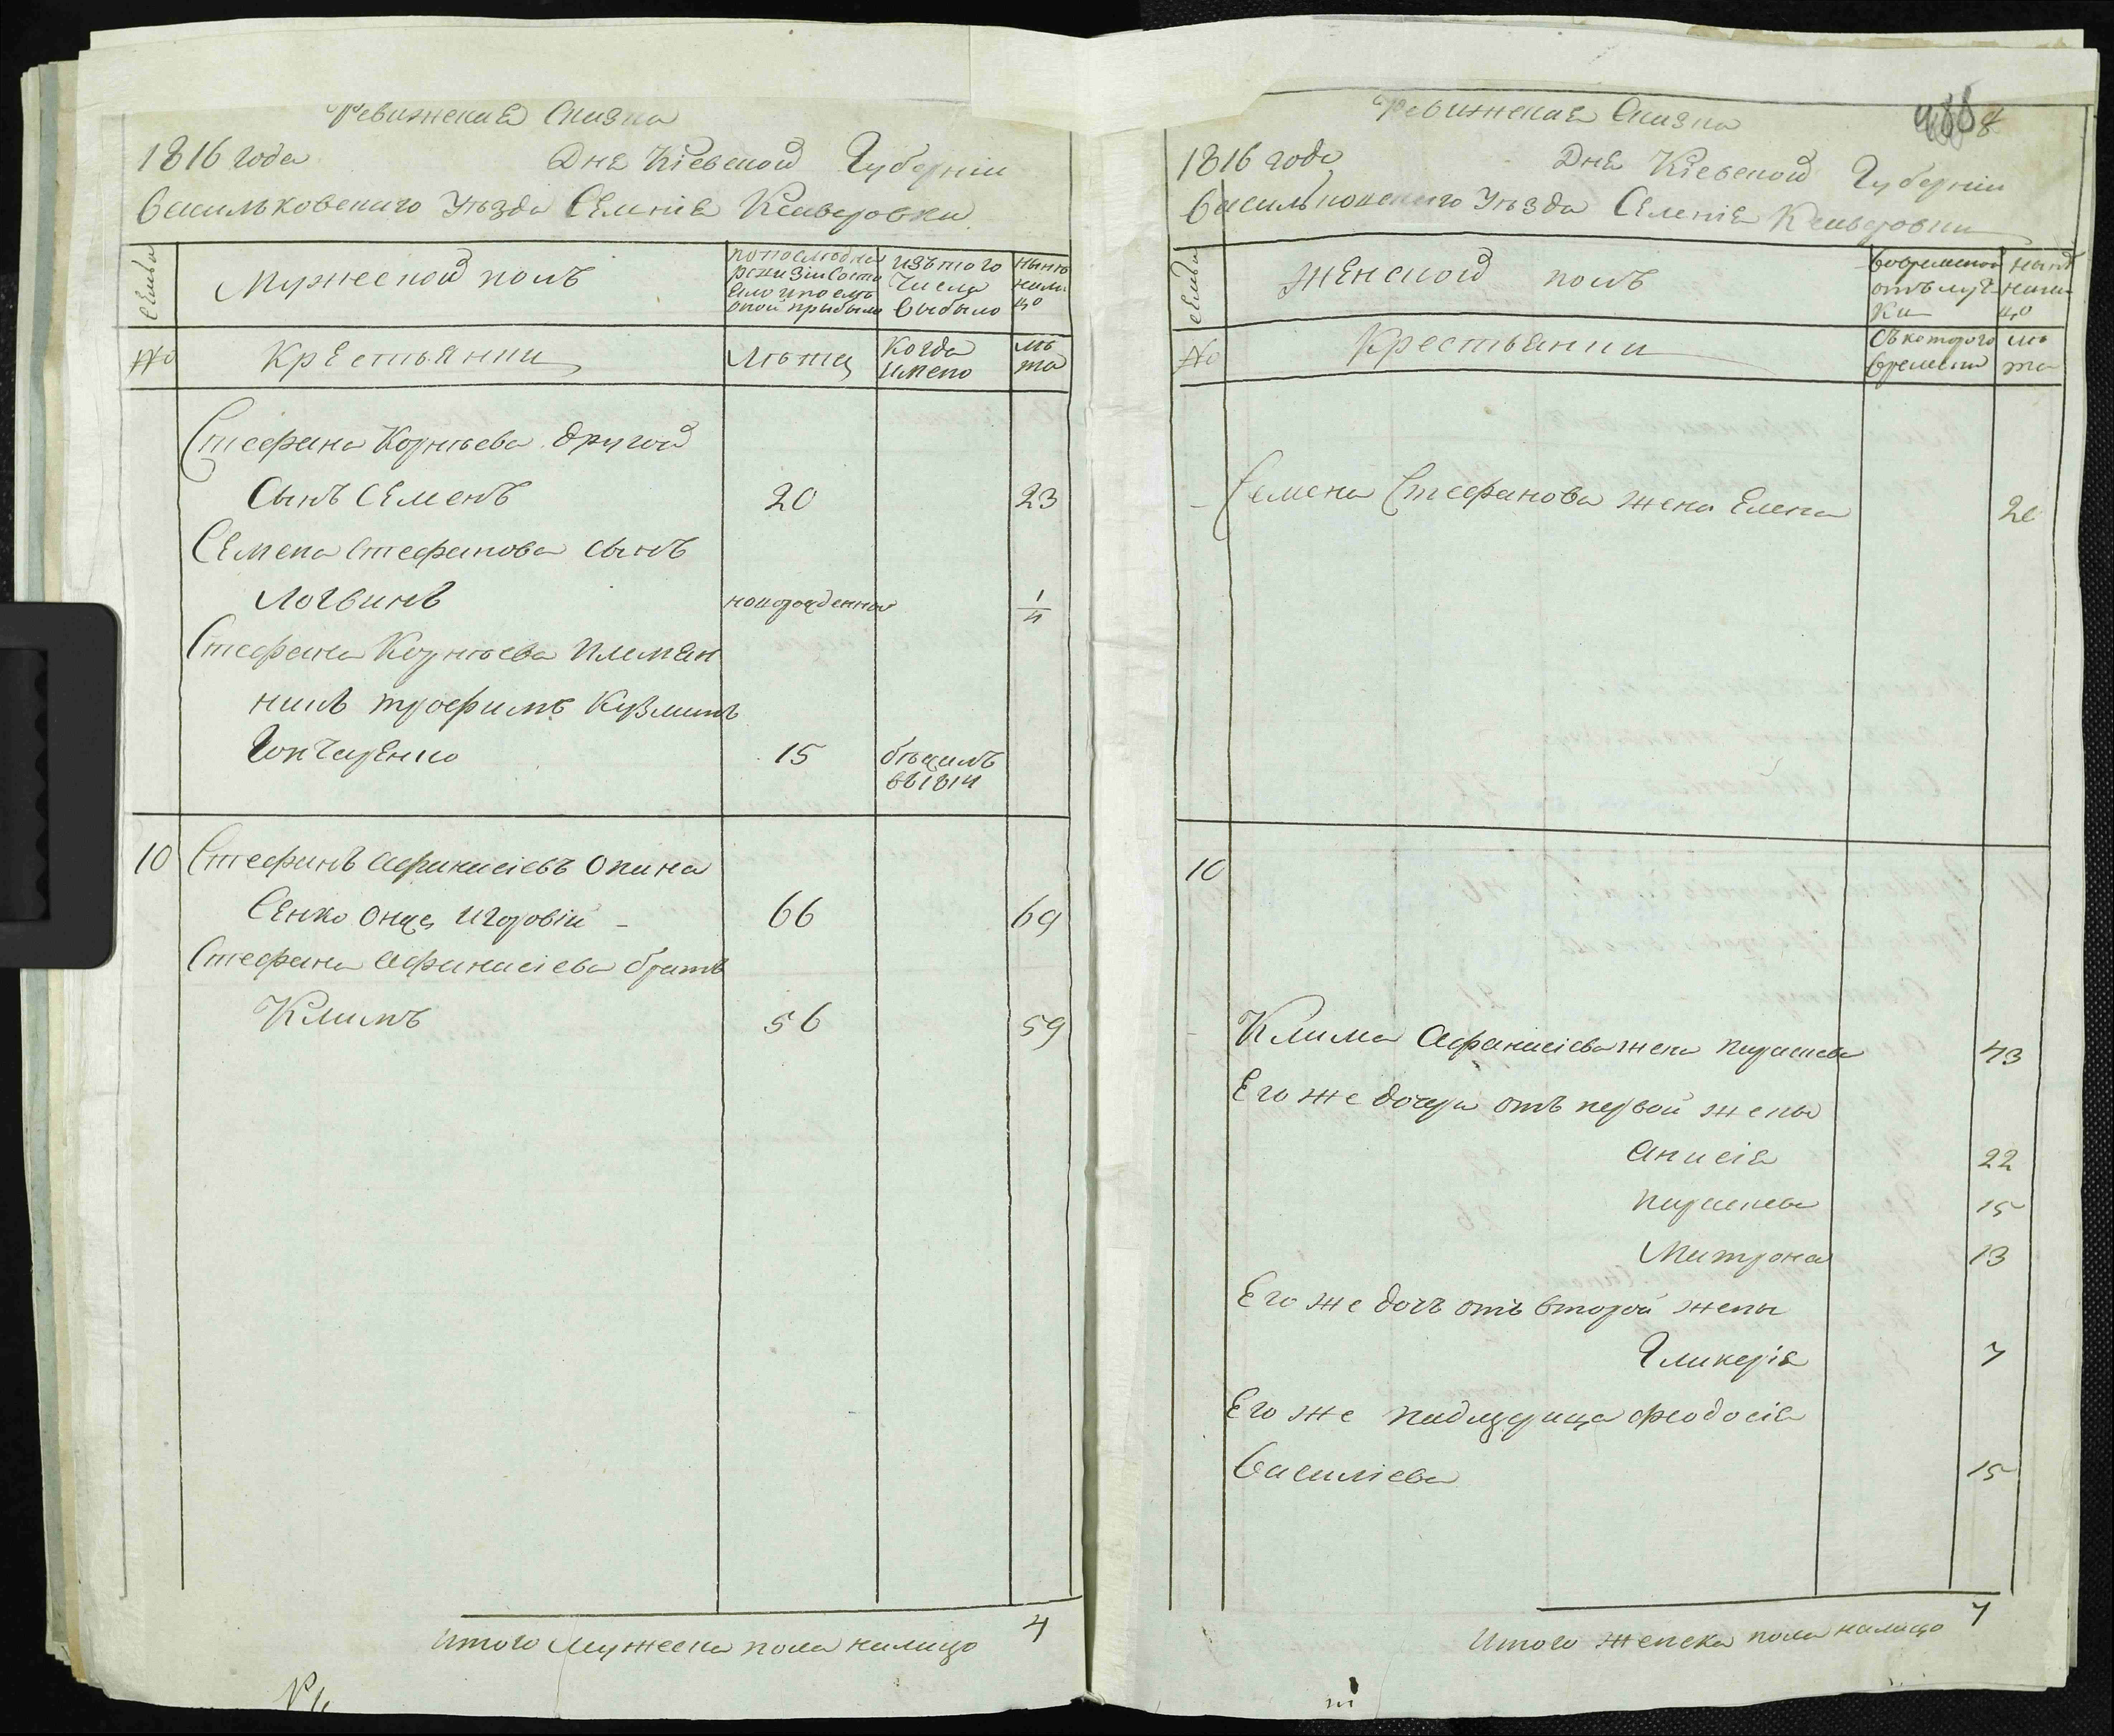 Ревижская Сказка
1816 года Дня Кіевской Губерніи
Васильковскаго Уезда Селенія Ксаверовки
семьи
Мужеской полъ
по последней ревизіи состояло и после оной прибыло
изътого числа выбыло
ныне налицо
№
Крестьянии
Лета
Когда имено
лета
Стефана Корнѣева другой
сынъ Семенъ 20 23
Семена Стефанова сынъ
Логвинъ новорожденной 1/4
Стефана Корнѣева племян
никъ трофимъ Кузминъ
Гончаренко 15 бѣжалъ
въ 1814
10 Стефанъ Афанасіевъ Опана
Сенко Онже Игоровій - 66 69
Стефана Афанасіева братъ
Климъ 56 59
Итого Мужеска пола налицо 4
Ревижская Сказка
8
1816 года Дня Кіевской Губерніи
Васильковскаго Уезда Селенія Ксаверовки
семьи
Женской полъ
Вовременой отълучки
ныне налицо
№
Крестьянии
Съкоторого времени
лета
Семена Стефанова жена Елена 20
10
Клима Афанасіева жена параска 43
Его же дочери отъ первой жены
Анисія 22
параска 15
Матрона 13
Его же дочъ отъ второй жены
Гликерія 7
Его же падщерица феодосія
Василіева 15
Итого женска пола налицо 7